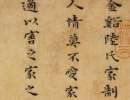 金谿陸氏家制
人情莫不愛家
適以害之家之